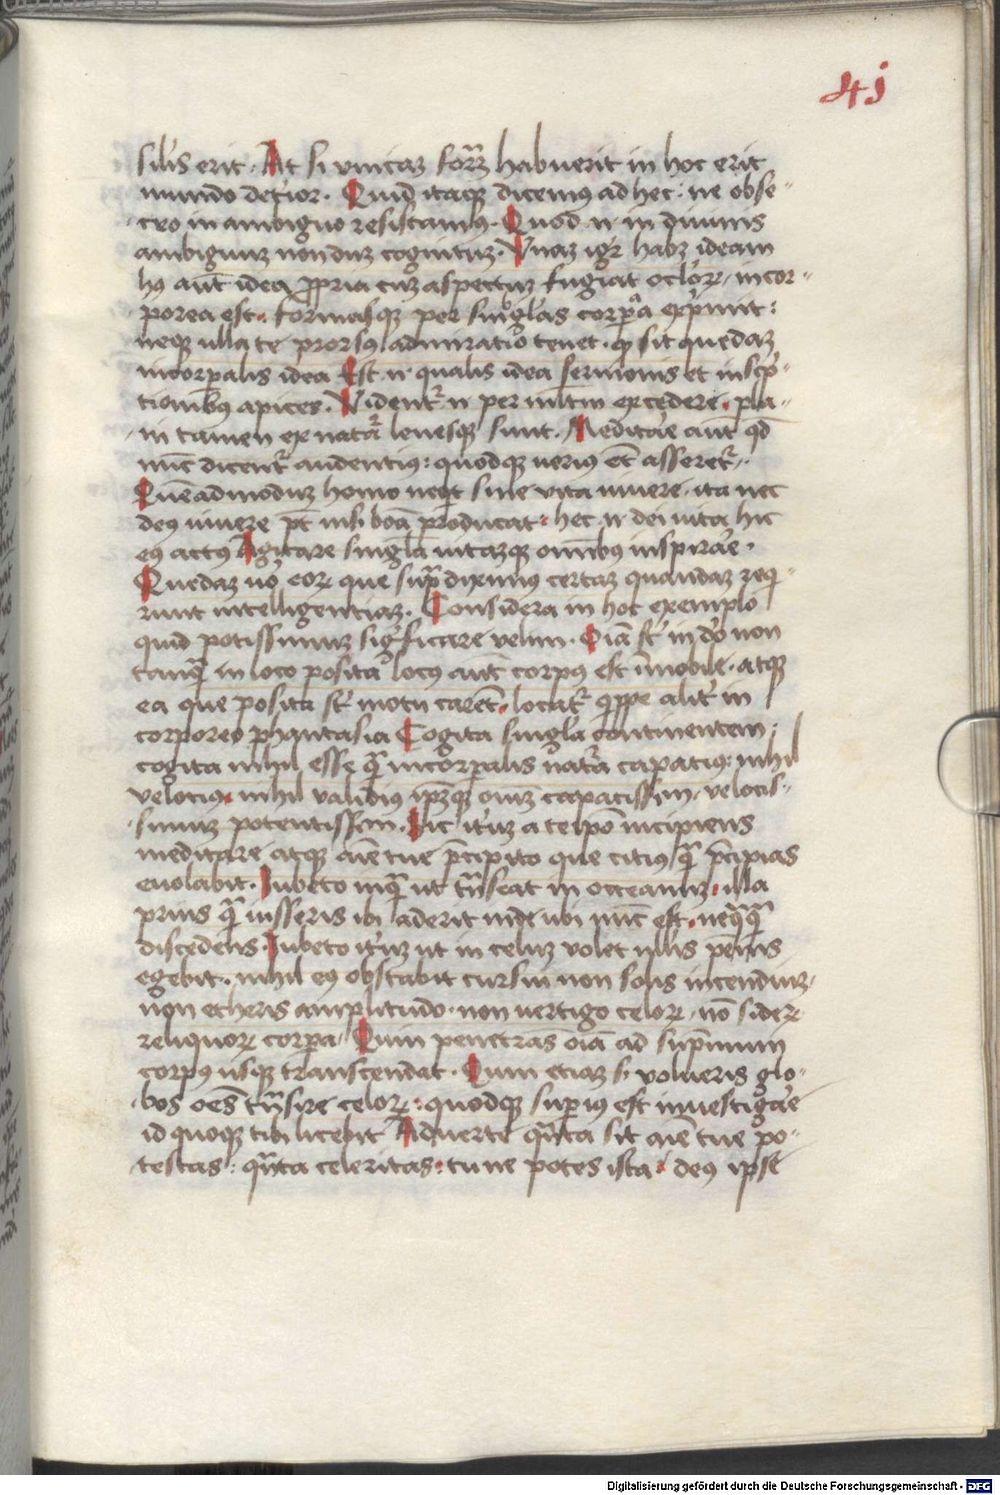 41
silis erit. At si vnicaz formaz habuerit in hoc erit
mundo deterior. Quid itaque dicemus ad hec: ne obse-
cro in ambiguo resistamus. Quod n in diuinis
ambiguuz nondum cognituz. Vnaz igr habz ideam
hec aut idea propria cuz aspectuz fugiat oclorum, incor-
porea est. formasque per singlas corpora exprimit:
neque ulla te prorsus admiratio tenet. q sit quedaz
incorpalis idea Est n qualis idea sermonis et in scrip-
tionibus apices. Videntr n per multum excedere. pla-
ni tamen ex natura leuesque sunt. Meditare aut qd
nuc dicetr audentius: quodque uerius et asseretr.
Quéadmoduz homo neqt sine vita uiuere. ita nec
deus uiuere pt nisi bona producat. hec n dei uita hic
eius actus Agitare singla uitazque omnibus inspirare.
Quedaz uo eorum que supra diximus certaz quandaz requi-
runt intelligentiaz. Considera in hoc exemplo
quid potissimuz significare velim. Oia st in deo non
tanqua in loco posita locus aut corpus est imobile. atque
ea que posita st motu carent. locatr quippe aliter in
corporeo phantasia Cogita singla continentem:
cogita nihil esse qua incorpalis natura capatius: nihil
velocius. nihil validius ipzque omnium capacissim. velocis-
simuz potentissim. Hic itruz a te ipo incipiens
meditare atque aie tue precipito que citius qua precipias
euolabit. Iubeto inqua ut transeat in occeanuz. illa
prius qua iusseris ibi aderit inde ubi nunc est. nequaqua
discedens. Iubeto itruz ut in celuz volet nllis pennis
egebit. nihil eius obstabit cursui non solis incendiuz.
non etheris amplitudo. non uertigo celorum. no siderum
reliquorum corpora. Quin penetras oia ad supremum
corpus usque transcendat. Quin etiaz si volueris glo-
bos oes transire celorum: quodque superius est inuestigare
id quoque tibi licebit Aduerte quanta sit aie tue po-
testas: quanta celeritas. tu ne potes ista. deus ipse
Digitalisierung gefördert durch die Deutsche Forschungsgemeinschaft - DFG